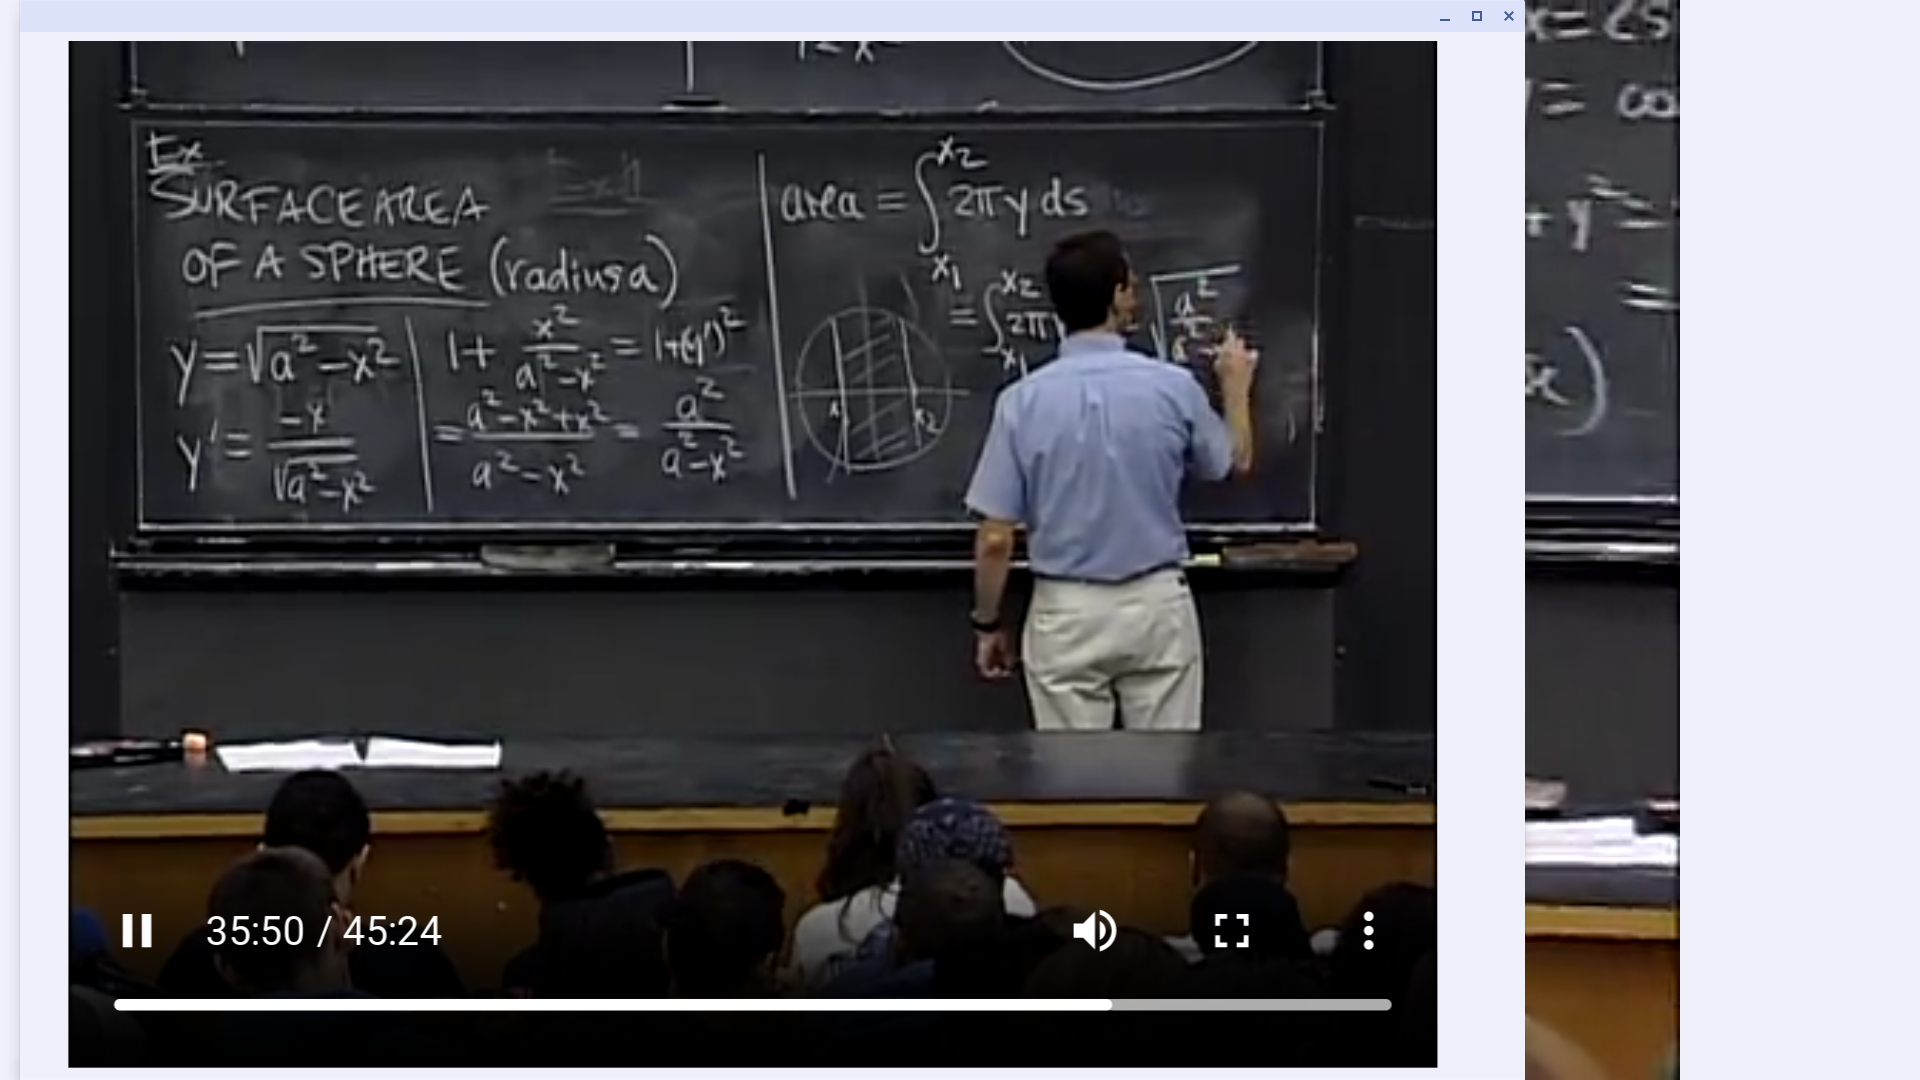 1 - x
Ex
SURFACE AREA
OF A SPHERE (radius a)
y = √(a² - x²)
y' = -x / √(a² - x²)
1 + x² / (a² - x²) = 1 + (y')²
= (a² - x² + x²) / (a² - x²) = a² / (a² - x²)
area = ∫ x₁ x₂ 2πy ds
= ∫ x₁ x₂ 2πy
√ a² / a² -
x₂
35:50 / 45:24
+ y² =